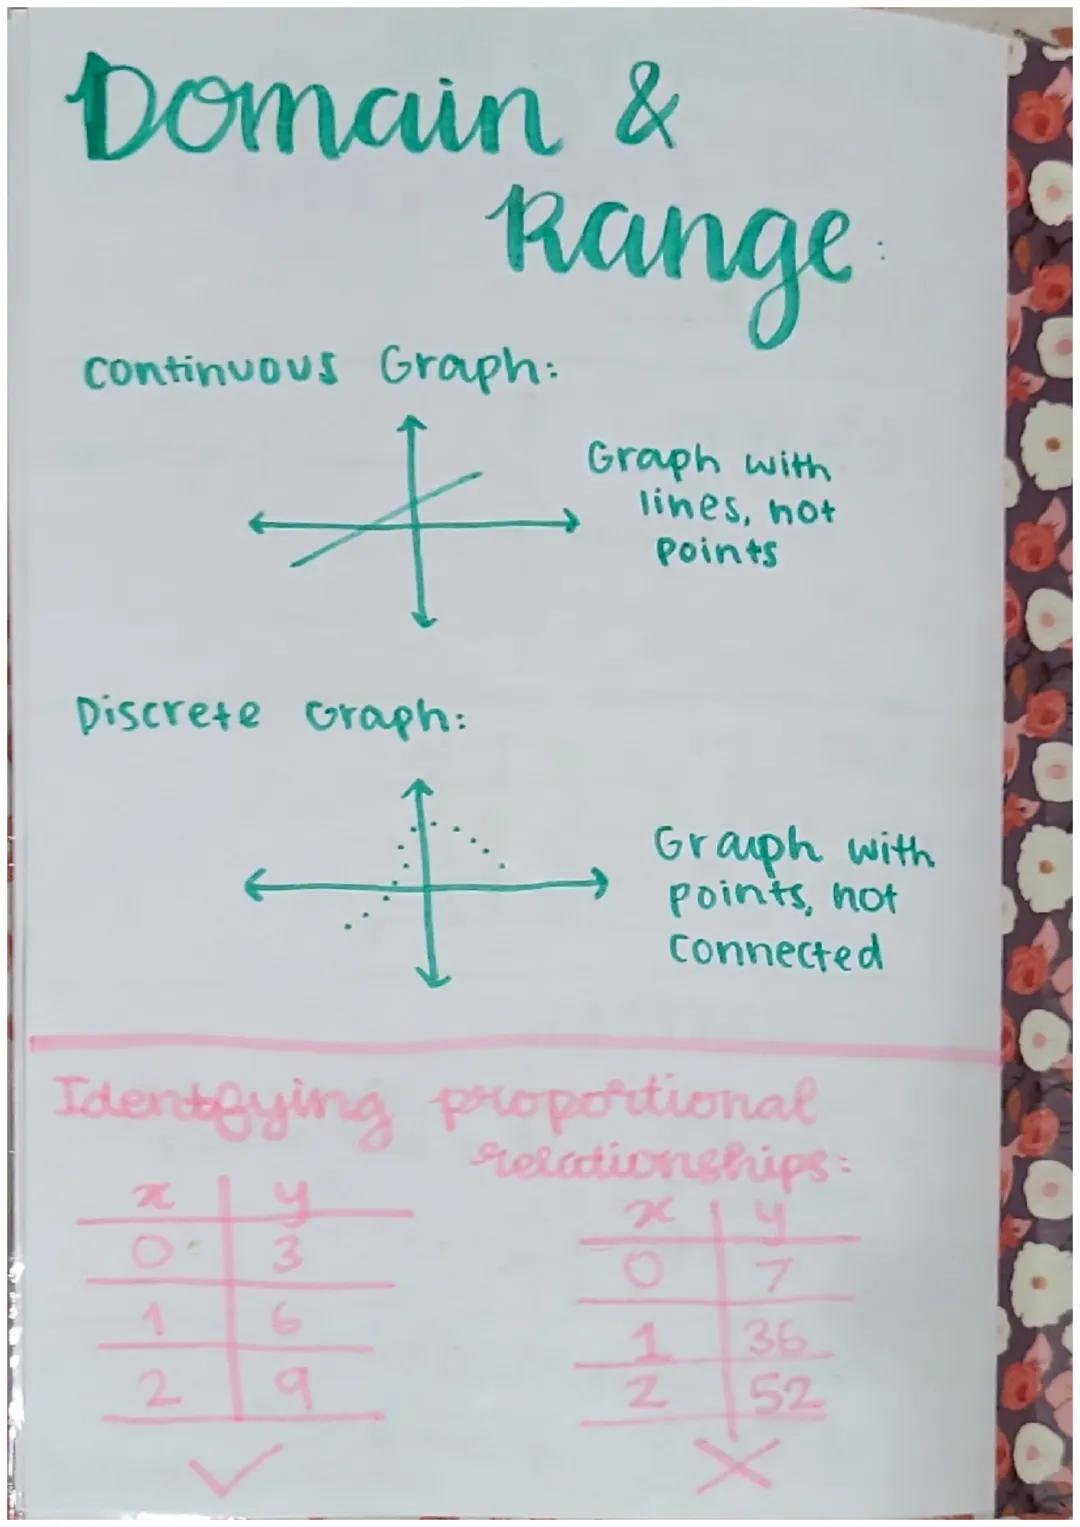 Domain &
Range:
Continuous Graph:
Graph with
lines, not
points
Discrete Graph:
Graph with
points, not
connected
Identifying proportional
relationships:
x y
0 3
1 6
2 9
x y
0 7
1 36
2 52